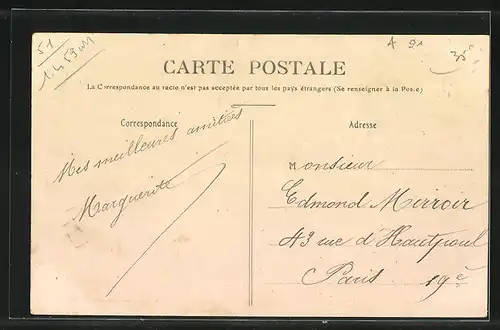 51
A 91
CARTE POSTALE
La Correspondance au recto n'est pas acceptée par tous les pays étrangers (Se renseigner à la Poste)
Correspondance
Mes meilleures amitiés
Marguerite
Adresse
Monsieur
Edmond Mirroir
43 rue d'Hautpoul
Paris 19e